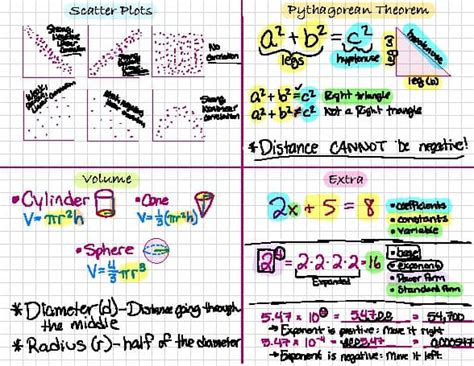 Scatter Plots
Strong,
Negative
Linear
Correlation
Strong,
Positive
Linear
Correlation
No
Correlation
Weak,
Strong
Nonlinear
Correlation
Pythagorean Theorem
a² + b² = c²
legs
hypotenuse
leg (b)
a² + b² = c² Right triangle
a² + b² ≠ c² Not a Right triangle
* Distance CANNOT be negative!
Volume
• Cylinder
V = πr²h
• Cone
V = 1/3(πr²h)
• Sphere
V = 4/3πr³
* Diameter (d) - Distance going through
the middle
* Radius (r) - half of the diameter
Extra
2x + 5 = 8
• coefficients
• constants
• variable
2⁴ = 2·2·2·2 = 16
Expanded
• base
• exponent
• Power Form
• Standard Form
= 54,700
→ Exponent is positive: Move it right
5.47 x 10⁻⁴
→ Exponent is negative: Move it left